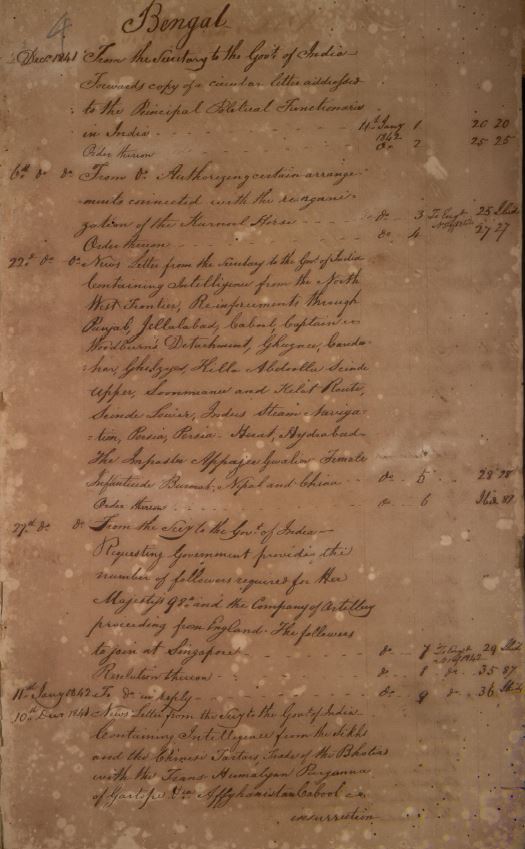 4
Bengal
Decr 1841 From the Secretary to the Govt of India
Forwards copy of a circular letter addressed
to the Principal Political Functionaries
in India - - - 11th Jany 1 20 20
1842
Order thereon do 2 25 25
6th do do From do Authorizing certain arrange-
ments connected with the reorgani-
zation of the Kurnool Horse - - do 3 25 Ibid
Order thereon - - - do 4 27 27
22d do do News Letter from the Secretary to the Govt of India
Containing Intelligence from the North
West Frontier, Reinforcements through
Punjab, Jellalabad, Cabool, Captain
Woodburn's Detachment, Ghuznee, Canda-
:har, Ghelzyes, Killa Abdoolla Scinde
Upper, Soonmeanee and Kelat Route,
Scinde Lower, Indus Steam Naviga-
:tion, Persia, Persia - Herat, Hydrabad
The Impostor Appajee Gwalior Female
Infanticide Burmah, Nipal and China - - do 5 28 28
Order thereon - - - do 6 Ibid 87
27th do do From the Secy to the Govt of India
Requesting Government provides the
number of followers required for Her
Majesty's 98th and the Company of Artillery
proceeding from England. The followers
to join at Singapore - - - do 7 29 Ibid
Resolution thereon - - - do 8 do 35 87
11th Jany 1842 To do in reply - - - do 9 do 36 Ibid
10th Decr 1841 News Letter from the Secy to the Govt of India
Containing Intelligence from the Sikhs
and the Chinese Tartars, Trade of the Bhotias
with the Trans Hemalyan Pergunna
of Gartope Affghanistan Cabool
insurrection